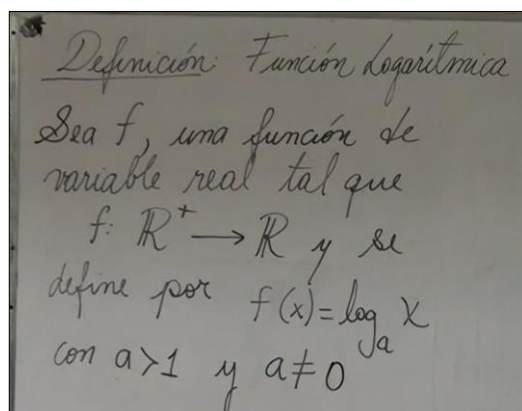 Definición: Función Logarítmica
Sea f, una función de
variable real tal que
f: ℝ⁺ → ℝ y se
define por f(x) = logₐ x
con a>1 y a≠0